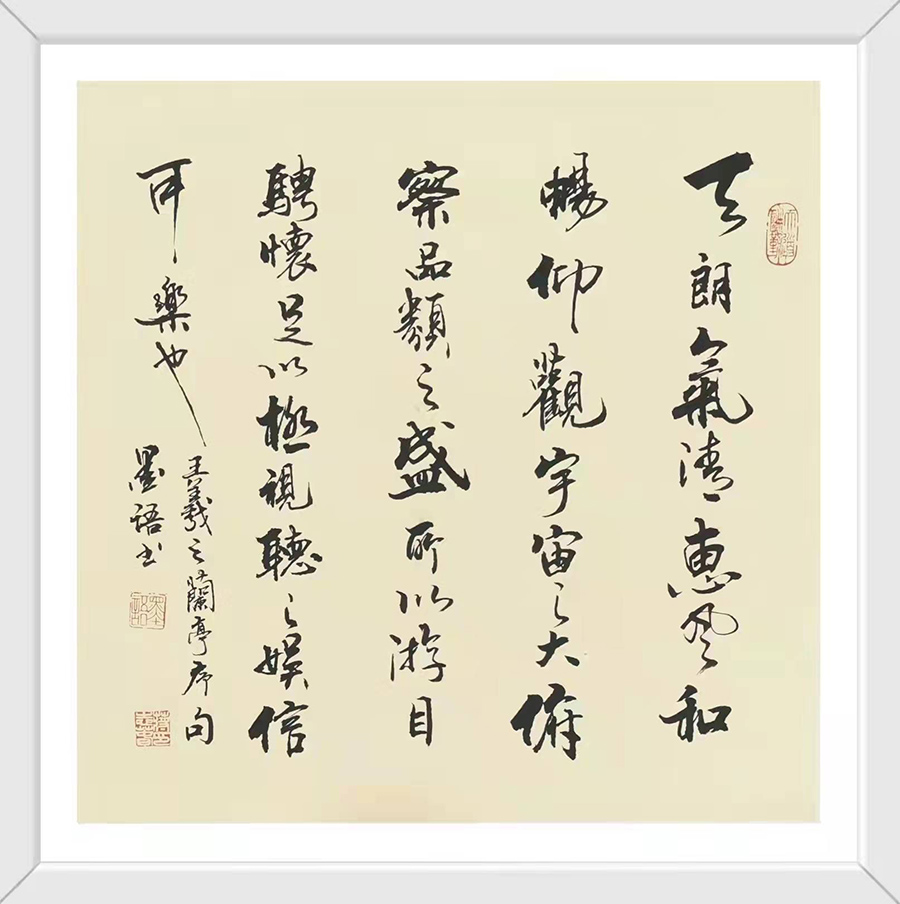 天朗氣清惠風和
暢仰觀宇宙之大俯
察品類之盛所以游目
騁懷足以極視聽之娛信
可樂也
王羲之蘭亭序句
墨语书